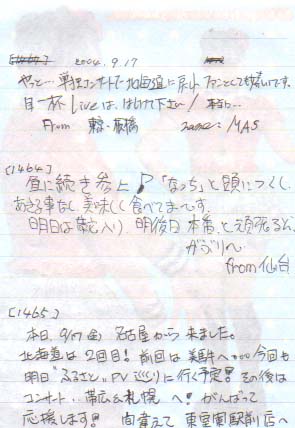 [1463] 2004.9.17
やっと… 単独コンサートで北海道に戻り ファンとしても嬉しいです。
目一杯 Liveは、はじけて下さい!
From 東京・板橋 name: MAS
[1464]
夏に続き参上♪「なっち」と頭につくし、
あきる事なし 美味しく食べてま〜す。
明日は帯広入り、明後日 本番、と頑張るぞ、
from仙台
[1465]
本日、9/17(金) 名古屋から来ました。
北海道は2回目! 前回は美瑛へ… 今回も
明日"ふるさと"PV巡りに行く予定!! その後は
コンサート・帯広&札幌へ! がんばって
応援します!! 間違えて 東室蘭駅前店へ